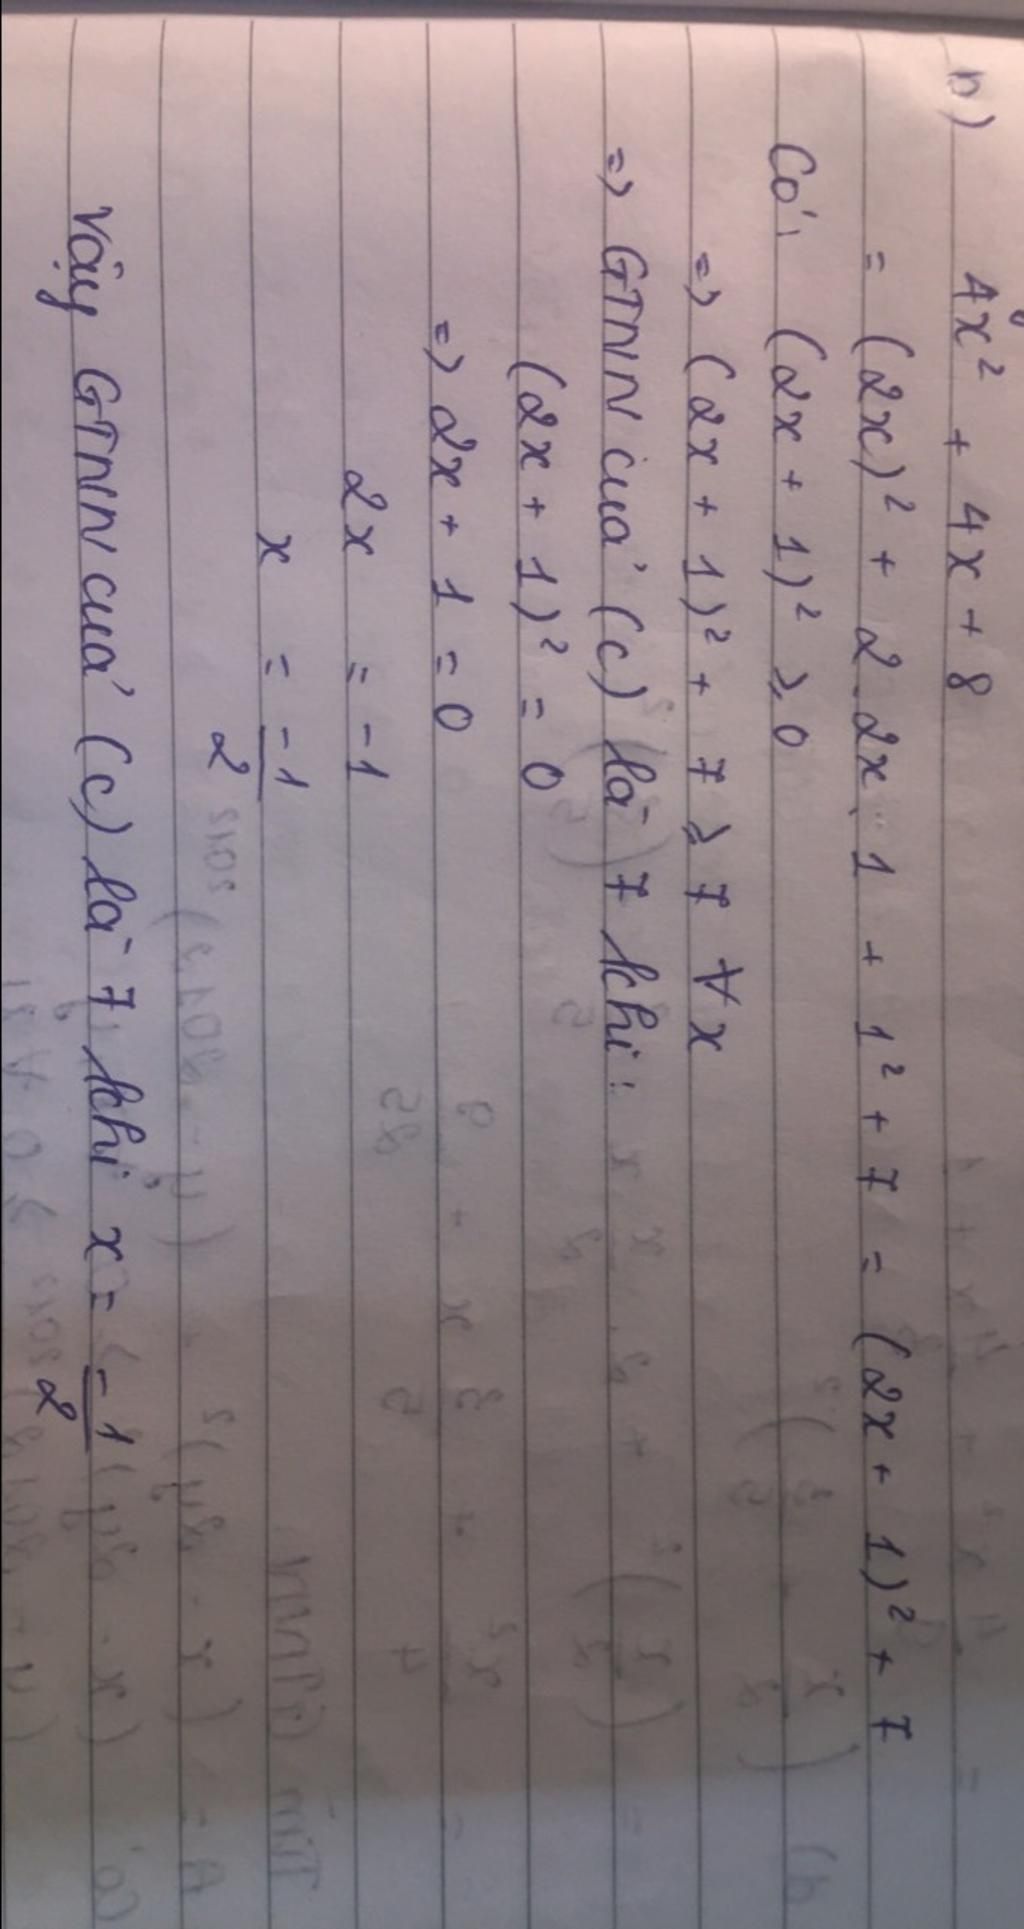 b) 4x² + 4x + 8
= (2x)² + 2.2x.1 + 1² + 7 = (2x + 1)² + 7
Có: (2x + 1)² ⩾ 0
=> (2x + 1)² + 7 ⩾ 7 ∀x
=> GTNN của (c) là 7 khi:
(2x + 1)² = 0
=> 2x + 1 = 0
2x = -1
x = -1/2
Vậy GTNN của (c) là 7 khi x = -1/2